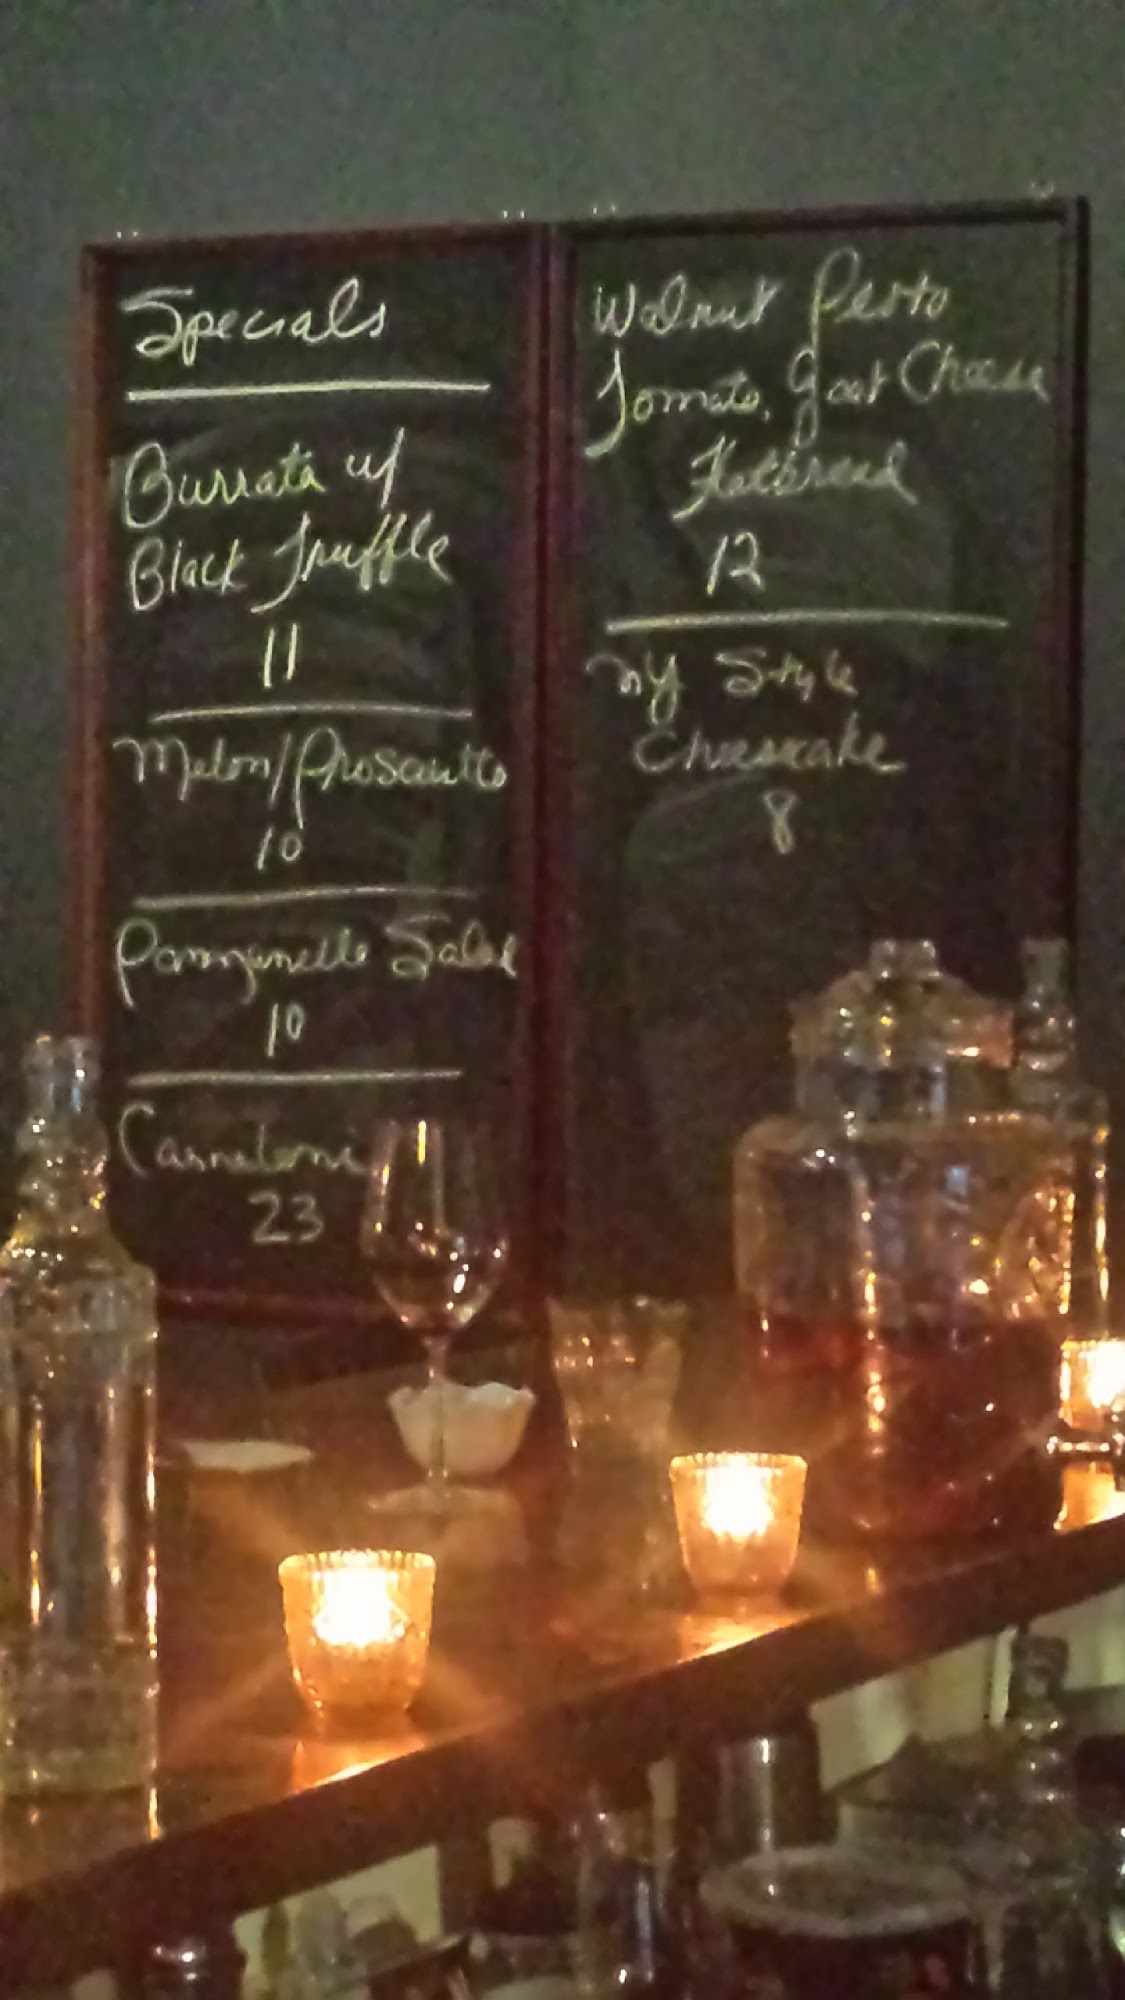 Specials
Burrata w/
Black Truffle
11
Melon/Proscuitto
10
Panzanella Salad
10
23
Walnut Pesto
Tomato, Goat Cheese
Flatbread
12
NY Style
Cheesecake
8